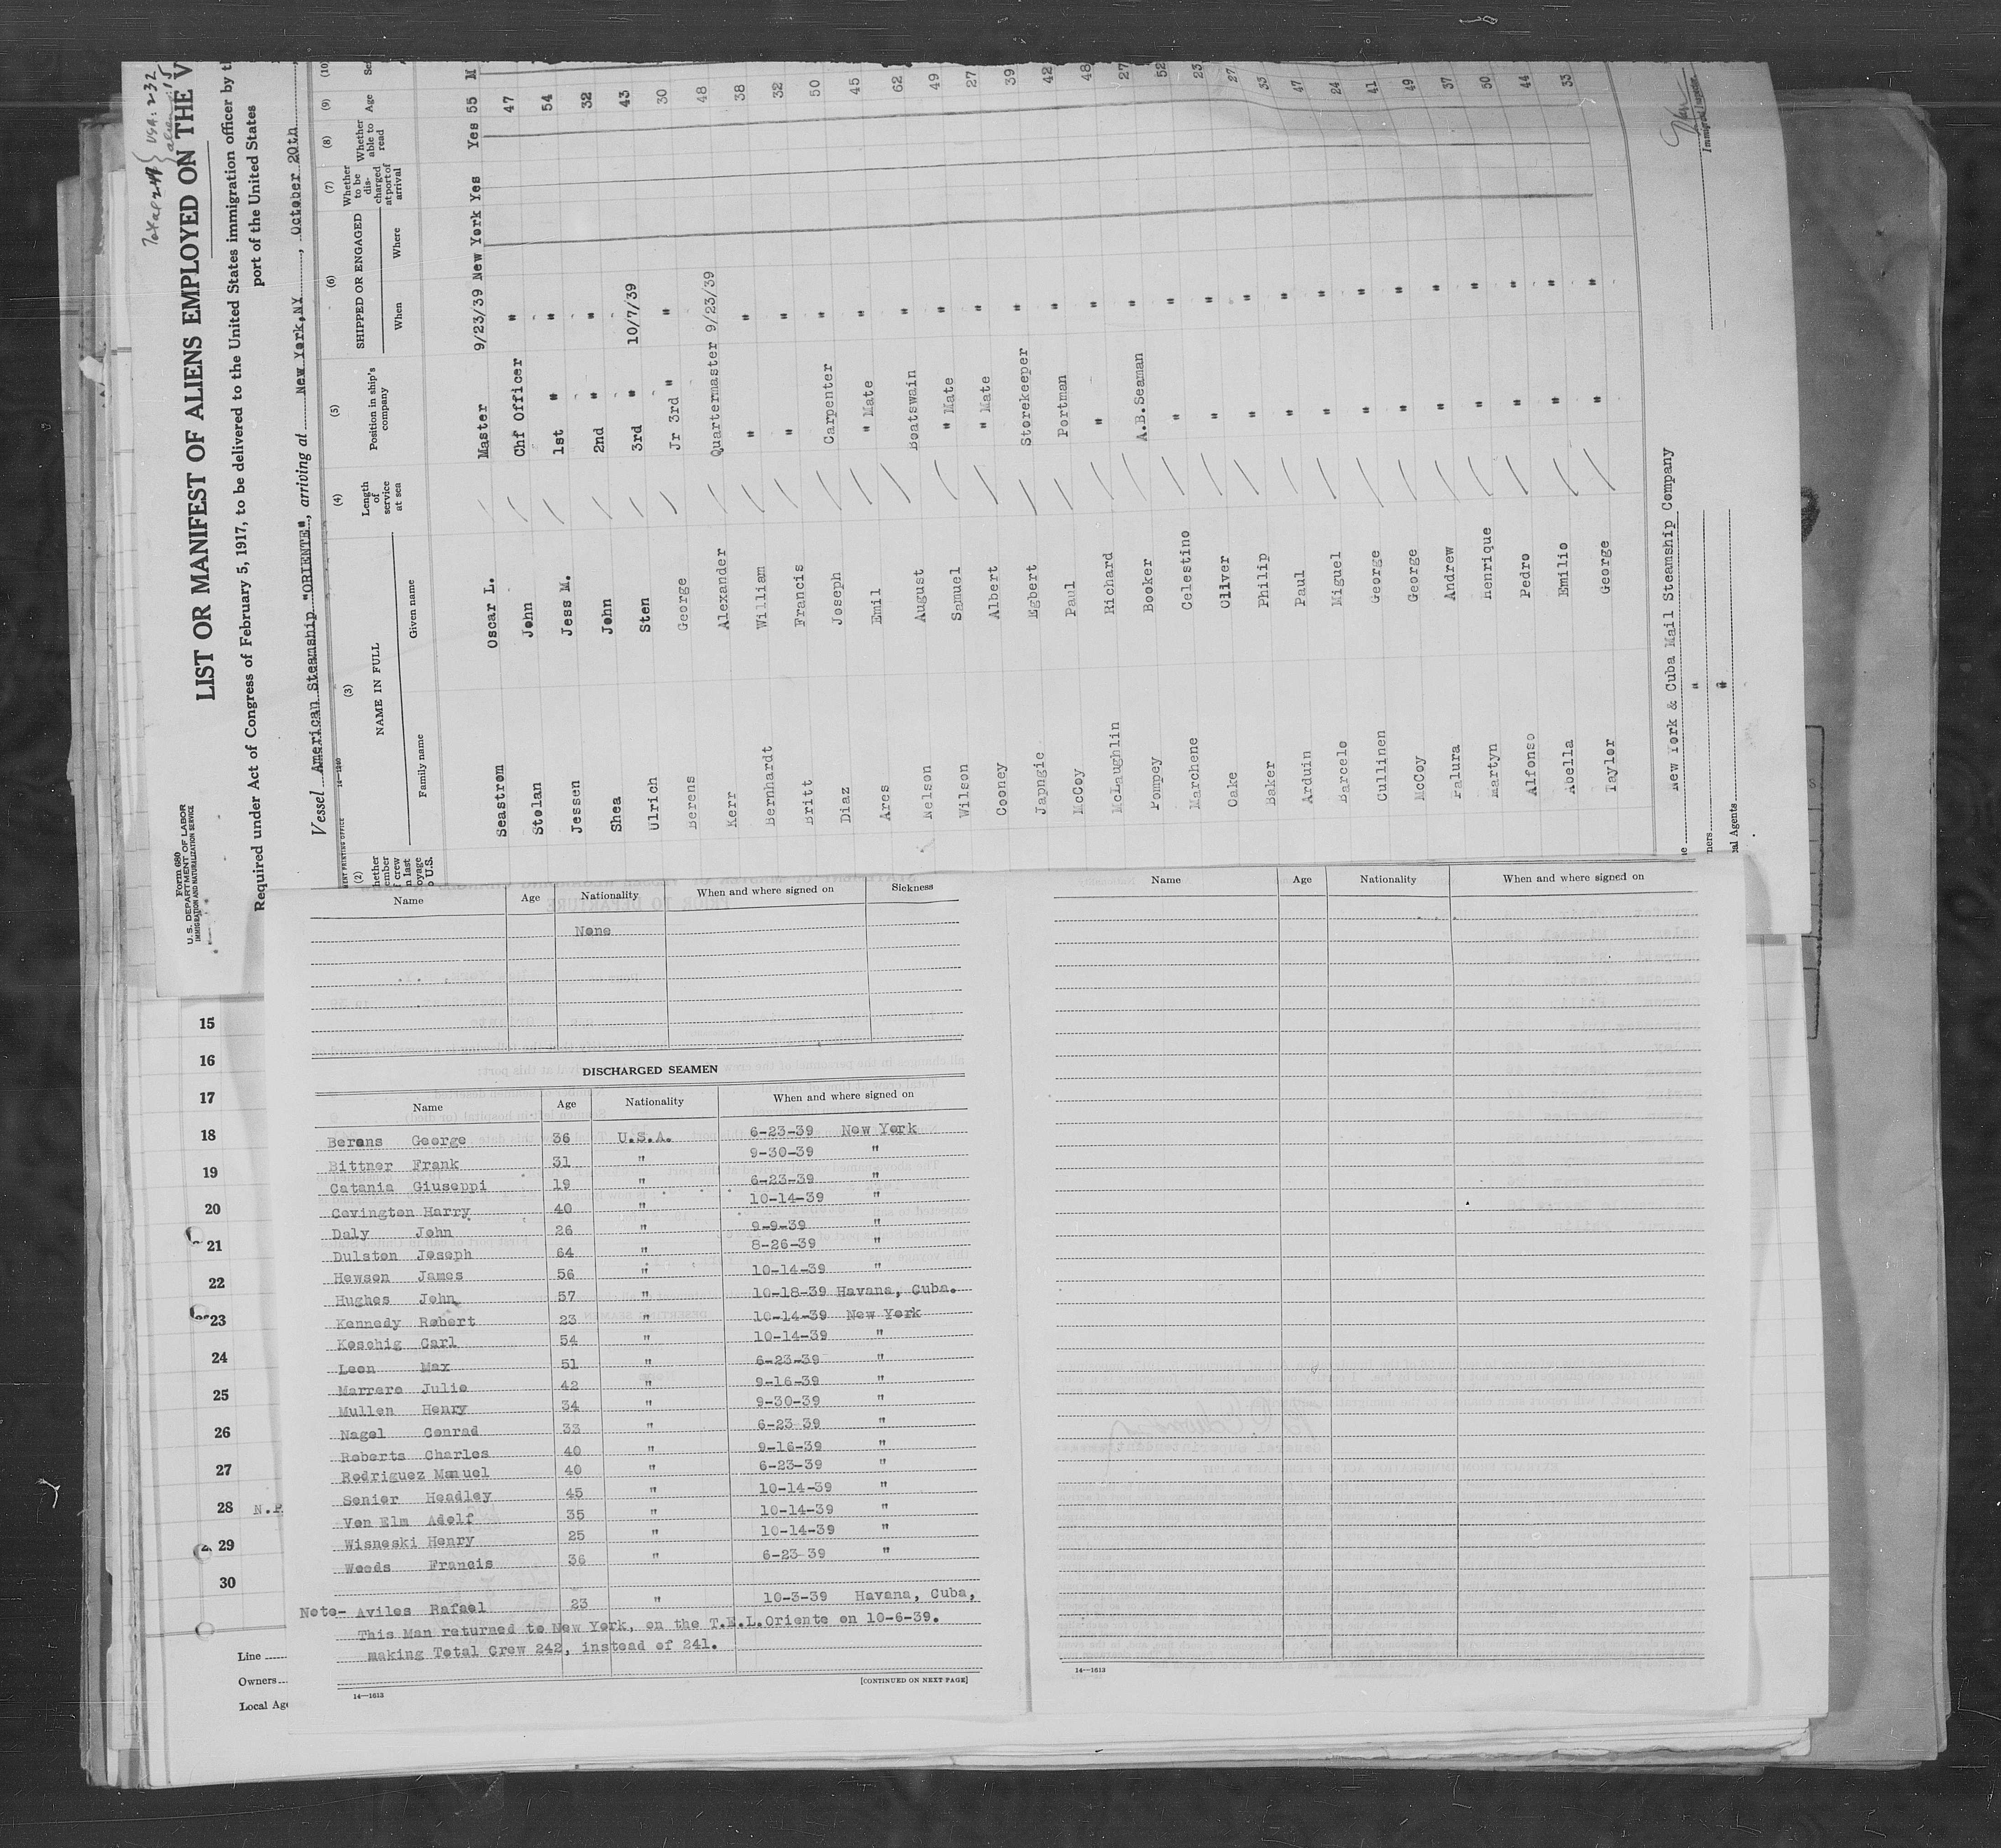 Total 247 { USA: 232
aliens: 15
Form 680
U. S. DEPARTMENT OF LABOR
IMMIGRATION AND NATURALIZATION SERVICE
LIST OR MANIFEST OF ALIENS EMPLOYED ON THE V
Required under Act of Congress of February 5, 1917, to be delivered to the United States immigration officer by t
port of the United States
Vessel American Steamship "ORIENTE", arriving at New York,NY, October 20th
(2) (3) (4) (5) (6) (7) (8) (9) (10)
NAME IN FULL Length of service at sea Position in ship's company SHIPPED OR ENGAGED Whether to be discharged at port of arrival Whether able to read Age
Family name Given name When Where
Seastrom Oscar L. Master 9/23/39 New York Yes Yes 55 M
Stolan John Chf Officer " 47
Jessen Jess M. 1st " " 54
Shea John 2nd " " 32
Ulrich Sten 3rd " 10/7/39 43
Berens George Jr 3rd " " 30
Kerr Alexander Quartermaster 9/23/39 48
Bernhardt William " " 38
Britt Francis " " 32
Diaz Joseph Carpenter " 50
Ares Emil " Mate " 45
Nelson August Boatswain " 62
Wilson Samuel " Mate " 49
Cooney Albert " Mate " 27
Japngie Egbert Storekeeper " 39
McCoy Paul Portman " 42
McLaughlin Richard " " 48
Pompey Booker A.B.Seaman " 27
Marchene Celestino " " 52
Cake Oliver " " 23
Baker Philip " " 27
Arduin Paul " " 35
Barcelo Miguel " " 47
Cullinen George " " 24
McCoy George " " 41
Palura Andrew " " 49
Martyn Henrique " " 37
Alfonso Pedro " " 50
Abella Emilio " " 44
Taylor George " " 33
New York & Cuba Mail Steamship Company
"
"
Immigrant Inspector
Name Age Nationality When and where signed on Sickness
None
DISCHARGED SEAMEN
Name Age Nationality When and where signed on
Berens George 36 U.S.A. 6-23-39 New York
Bittner Frank 31 " 9-30-39 "
Catania Giuseppi 19 " 6-23-39 "
Covington Harry 40 " 10-14-39 "
Daly John 26 " 9-9-39 "
Dulston Joseph 64 " 8-26-39 "
Hewson James 56 " 10-14-39 "
Hughes John 57 " 10-18-39 Havana, Cuba.
Kennedy Robert 23 " 10-14-39 New York
Koschig Carl 54 " 10-14-39 "
Leon Max 51 " 6-23-39 "
Marrero Julio 42 " 9-16-39 "
Mullen Henry 34 " 9-30-39 "
Nagel Conrad 33 " 6-23-39 "
Roberts Charles 40 " 9-16-39 "
Rodriguez Manuel 40 " 6-23-39 "
Senior Headley 45 " 10-14-39 "
Von Elm Adolf 35 " 10-14-39 "
Wisneski Henry 25 " 10-14-39 "
Woods Francis 36 " 6-23-39 "
Note- Aviles Rafael 23 " 10-3-39 Havana, Cuba,
This Man returned to New York, on the T.E.L.Oriente on 10-6-39.
making Total Crew 242, instead of 241.
[CONTINUED ON NEXT PAGE]
14—1613
Name Age Nationality When and where signed on
14—1613
15
16
17
18
19
20
21
22
23
24
25
26
27
28 N.P.
29
30
Line
Owners
Local Age